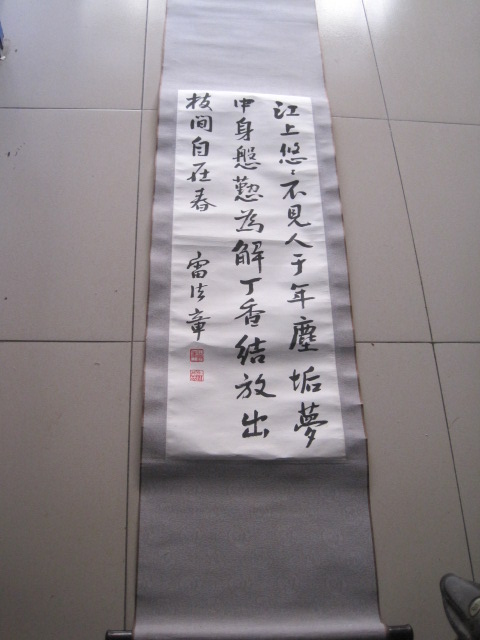 江上悠々不見人千年塵垢夢
中身殷懃為解丁香結放出
枝间自在春
雷法章